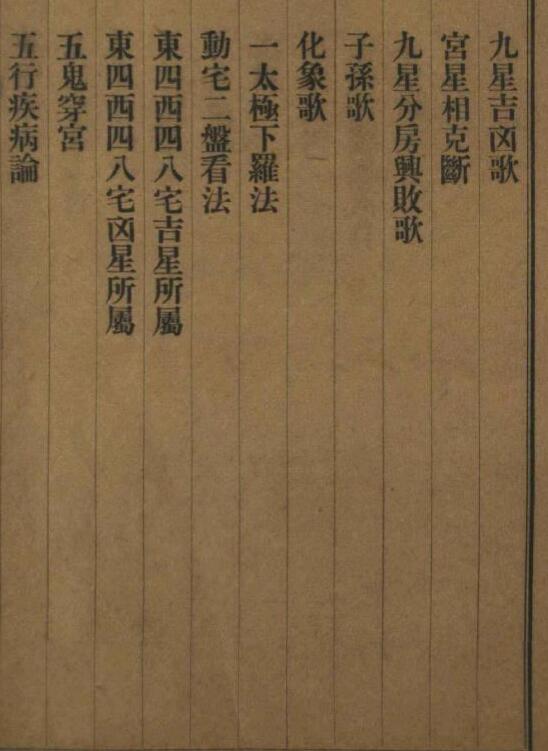 九星吉凶歌
宮星相克斷
九星分房興敗歌
子孫歌
化象歌
一太極下羅法
動宅二盤看法
東四西四八宅吉星所屬
東四西四八宅凶星所屬
五鬼穿宮
五行疾病論